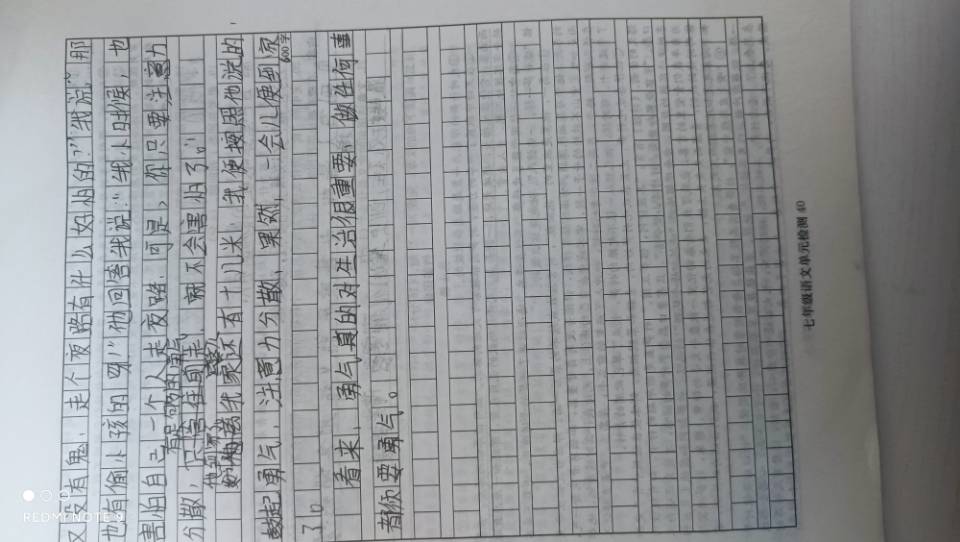 又没有鬼，走个夜路有什么好怕的？”我说：“那
也有偷小孩的呀！”他回答我说：“我小时候，也
害怕自己一个人走夜路，可是，你只要注意力
有足够的勇气
分散，只管往前走，就不会害怕了。”
他到家了
离我家还有十几米，我便按照他说的
鼓起勇气，注意力分散，果然，一会儿便到家
600字
了。
看来，勇气真的对生活很重要，做任何事
都须要勇气。
七年级语文单元检测 40
REDMI NOTE 9